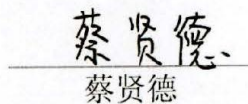 蔡贤德
蔡贤德